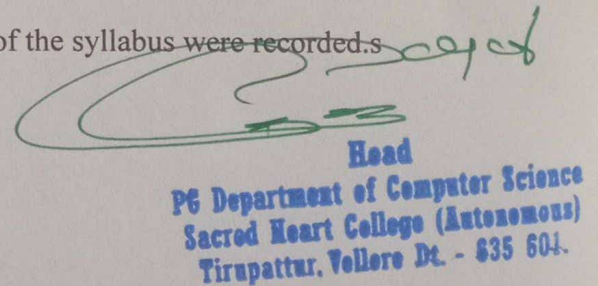 of the syllabus were recorded.s
Head
PG Department of Computer Science
Sacred Heart College (Autonomous)
Tirupattur, Vellore Dt. - 635 601.